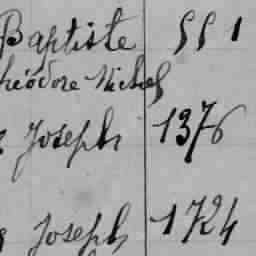 Baptiste 551
héodore Michel
Joseph 1376
Joseph 1724